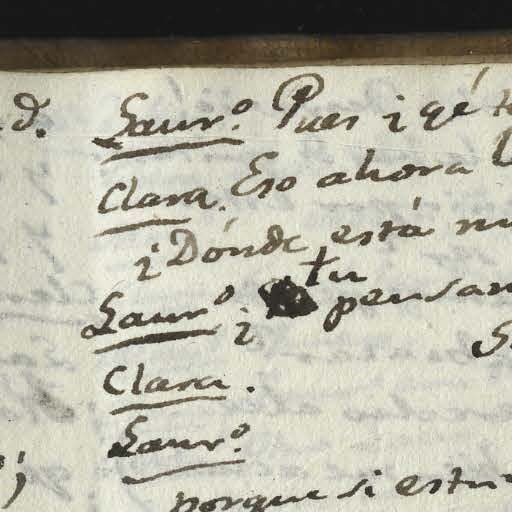 d. Laurº. Pues ¿qé
Clara. Eso ahora
¿Dónde está
tu
Laurº ¿ pensam
Clara.
Laurº
porque si estu